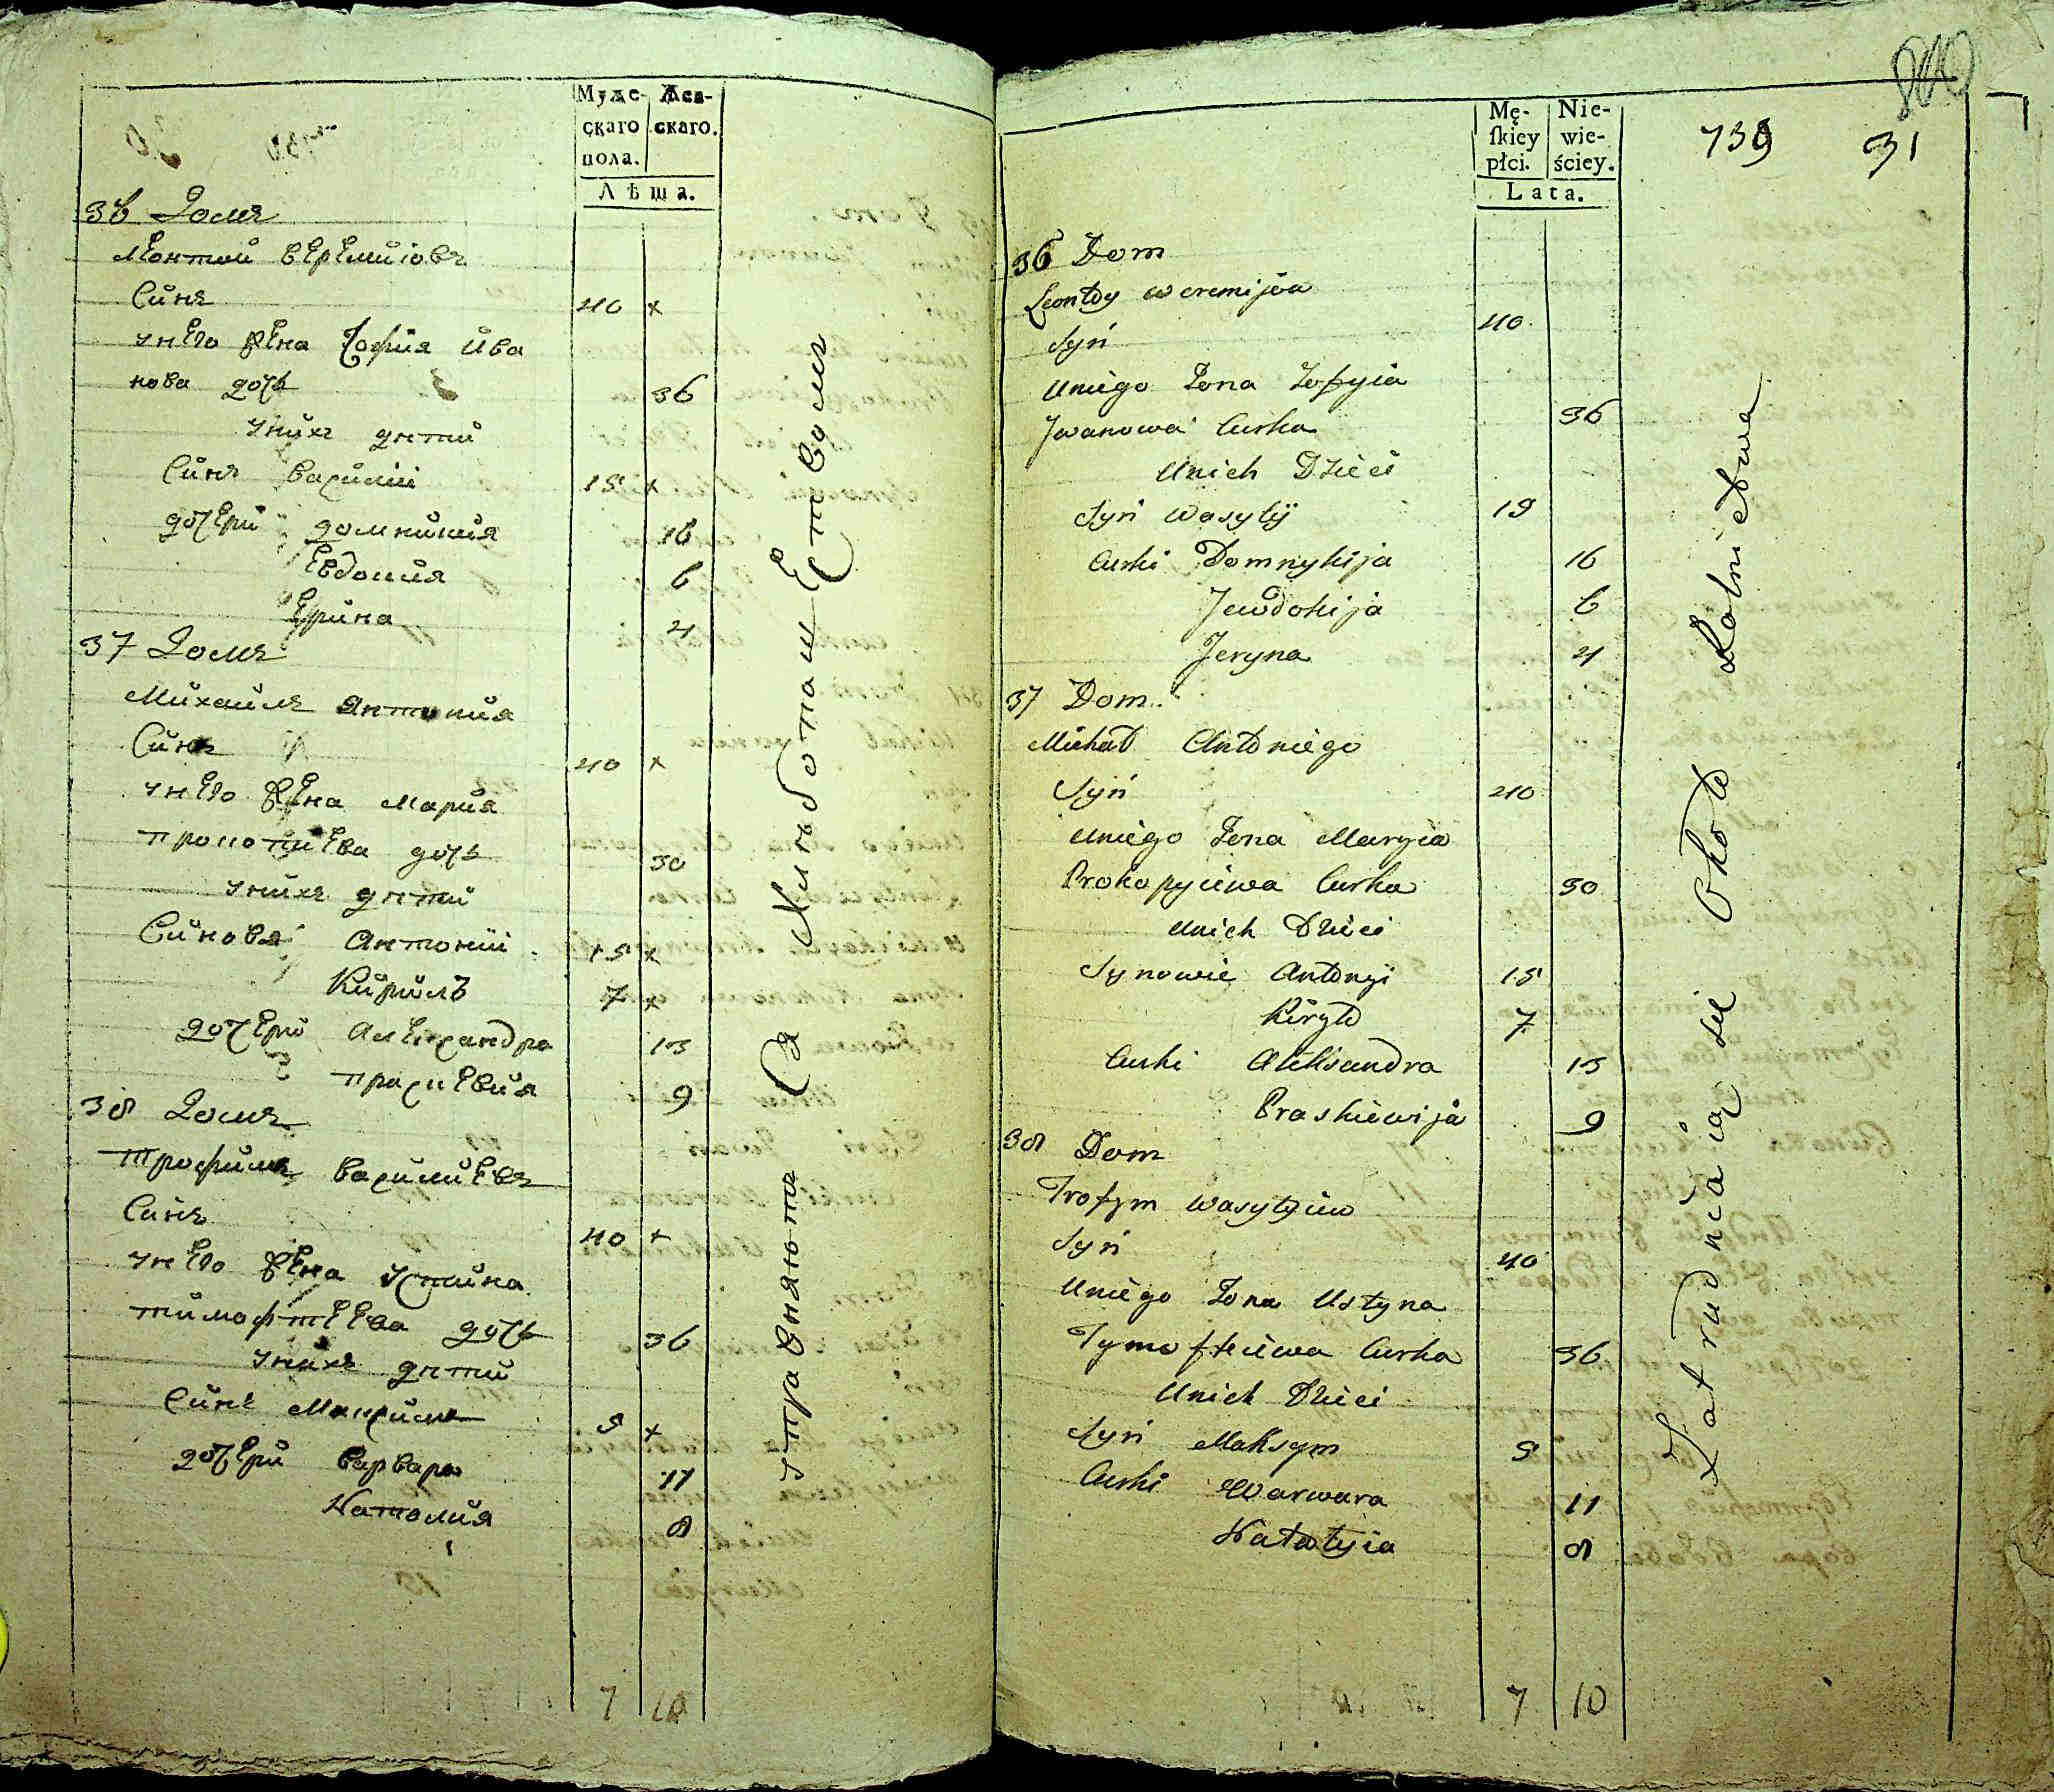 Мужескаго пола. Женскаго.
Лѣта.
36 Домъ
Леонтой Веремиіовъ
Синъ 40 x
унего жена София Ива
нова дочь 36
унихъ дѣти
Синъ Василій 19 x
дочери домникия 16
Евдокия 6
Ерина 4
37 Домъ
Михаилъ Антония
Синъ 40 x
унего жена Мария
прокопиева дочь 30
унихъ дѣти
Синовя Антоній 15 x
Кирилъ 7 x
дочери Александра 13
праскевия 9
38 Домъ
Трофимъ Василиевъ
Синъ 40 x
унего жена Устина
тимофтеева дочь 36
унихъ дѣти
Синъ Максимъ 9 x
дочери Варвара 11
Наталия 8
7 10
Управняются Хлѣботашеством
840
Męskiey płci. Niewieściey.
Lata.
739 31
36 Dom
Leonty Weremijów
Syn 40
Uniego Żona Zofyia
Jwanowa Curka 36
Unich Dzieci
Syn Wasylij 19
Curki Domnykija 16
Jewdokija 6
Jeryna 4
37 Dom
Michał Antoniego
Syn 40
Uniego Żona Maryia
Prokopyiewa Curka 30
Unich Dzieci
Synowie Antonyi 15
Kiryło 7
Curki Aleksandra 13
Praskiewija 9
38 Dom
Trofym Wasylyiew
Syn 40
Uniego Żona Ustyna
Tymofteiewa Curka 36
Unich Dzieci
Syn Maksym 9
Curki Warwara 11
Natalyia 8
7 10
Zatrudniaią się Około Rolnictwa